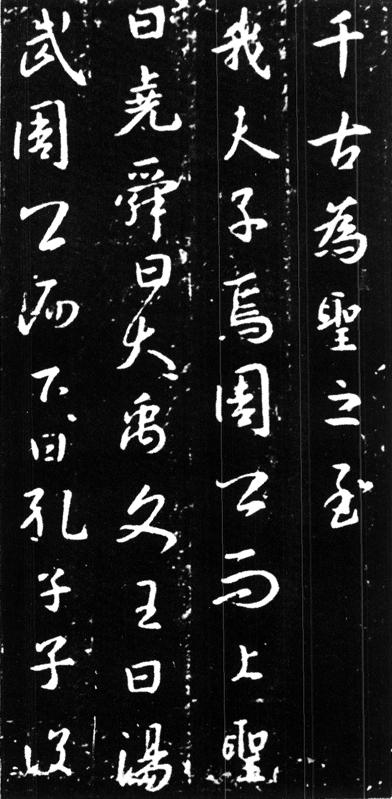 千古為聖之至
我夫子焉周公而上聖
曰堯舜曰大禹文王曰湯
武周公而下曰孔子子没